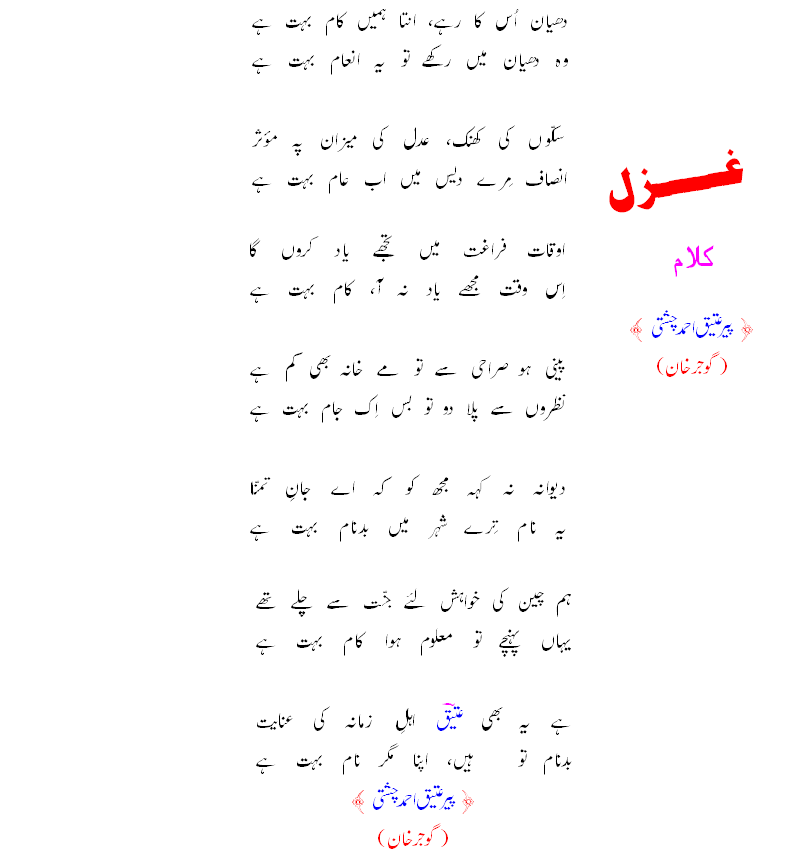 غزل
کلام
پیر عتیق احمد چشتی
(گوجرخان)
دھیان اُس کا رہے، اتنا ہمیں کام بہت ہے
وہ دھیان میں رکھے تو یہ انعام بہت ہے
سکّوں کی کھنک، عدل کی میزان پہ مؤثر
انصاف مِرے دیس میں اب عام بہت ہے
اوقات فراغت میں تجھے یاد کروں گا
اِس وقت مجھے یاد نہ آ، کام بہت ہے
پینی ہو صراحی سے تو مے خانہ بھی کم ہے
نظروں سے پلا دو تو بس اِک جام بہت ہے
دیوانہ نہ کہہ مجھ کو کہ اے جانِ تمنّا
یہ نام تِرے شہر میں بدنام بہت ہے
ہم چین کی خواہش لئے جنّت سے چلے تھے
یہاں پہنچے تو معلوم ہوا کام بہت ہے
ہے یہ بھی عتیقؔ اہلِ زمانہ کی عنایت
بدنام تو ہیں، اپنا مگر نام بہت ہے
پیر عتیق احمد چشتی
(گوجرخان)